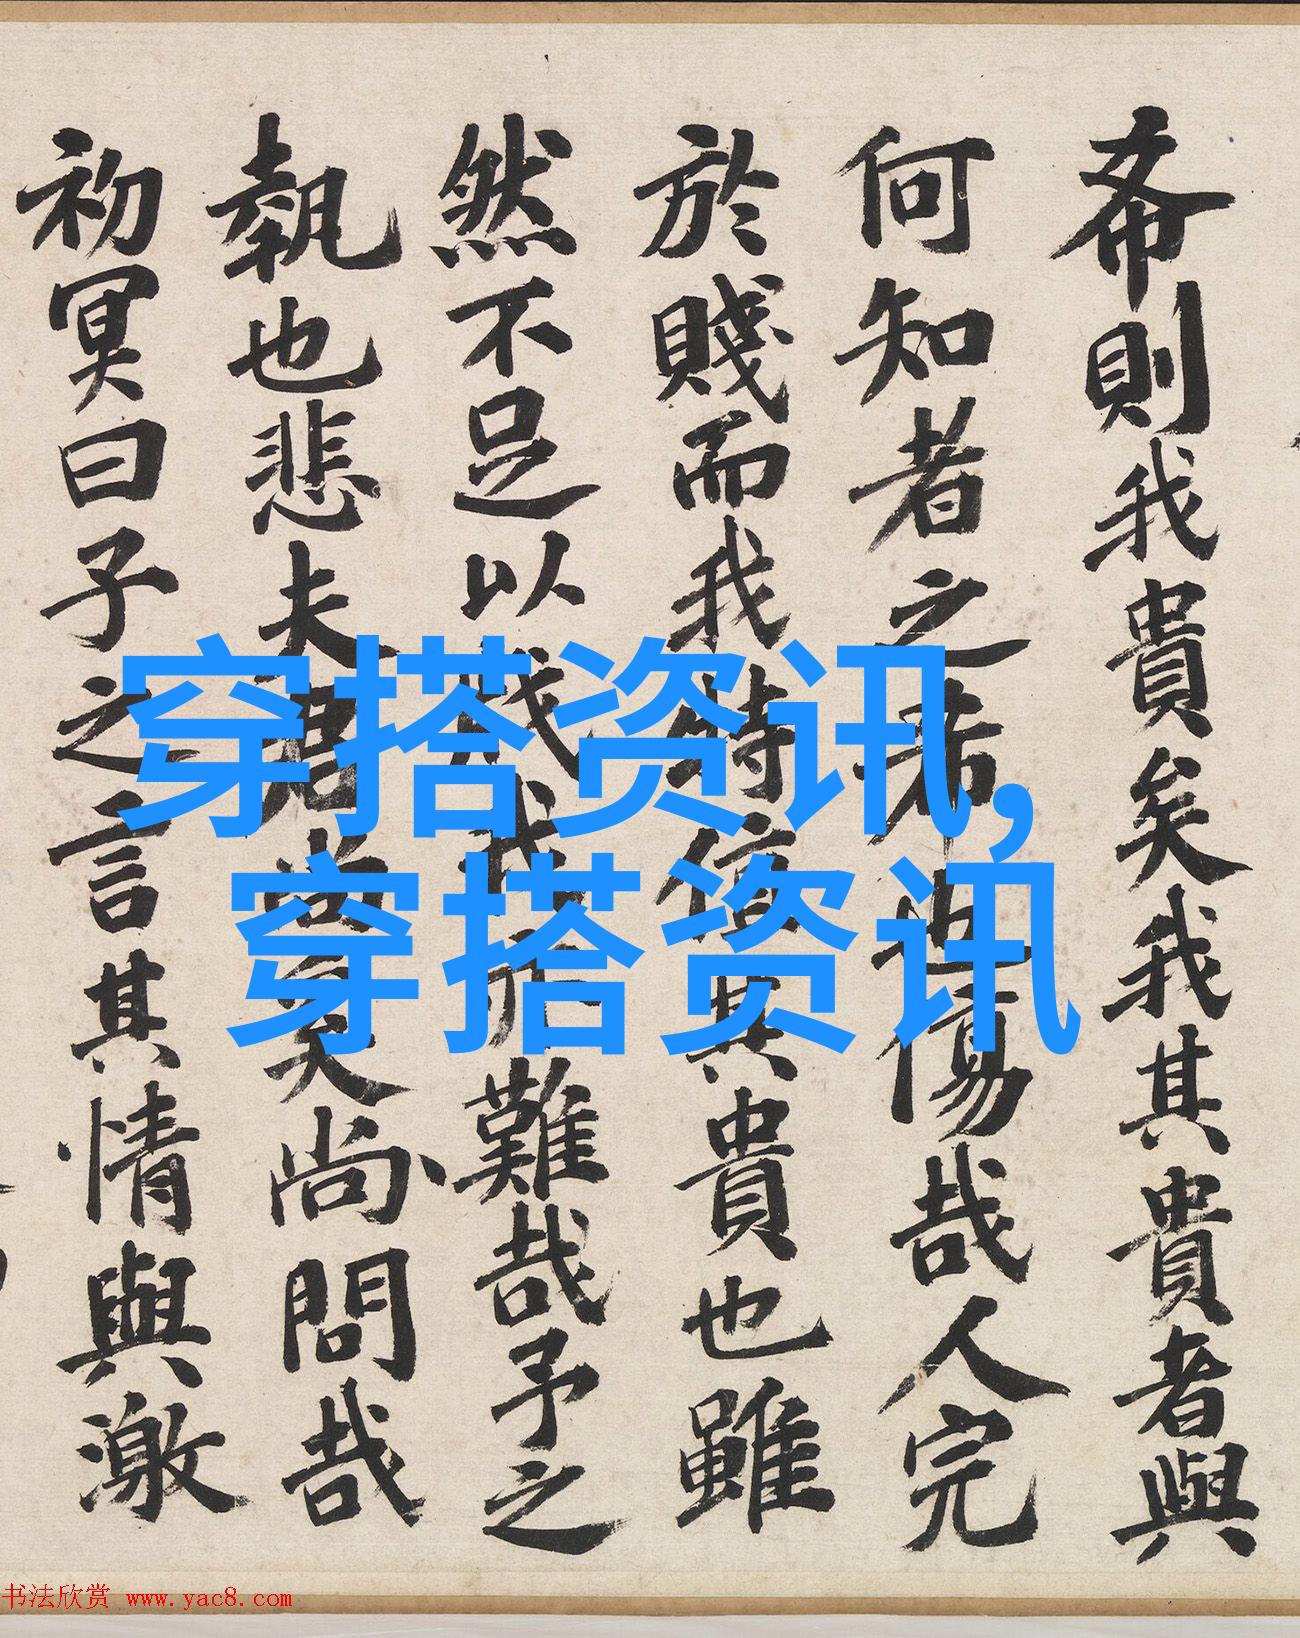 希則我貴矣我其貴者與
何知者之希也傷哉人完
於賤而我特信其貴也雖
然不足以我於難哉予之
執也悲夫君尚奚尚問哉
初冥曰子之言其情與激
穿搭资讯,
穿搭资讯
书法欣赏 www.yac8.com